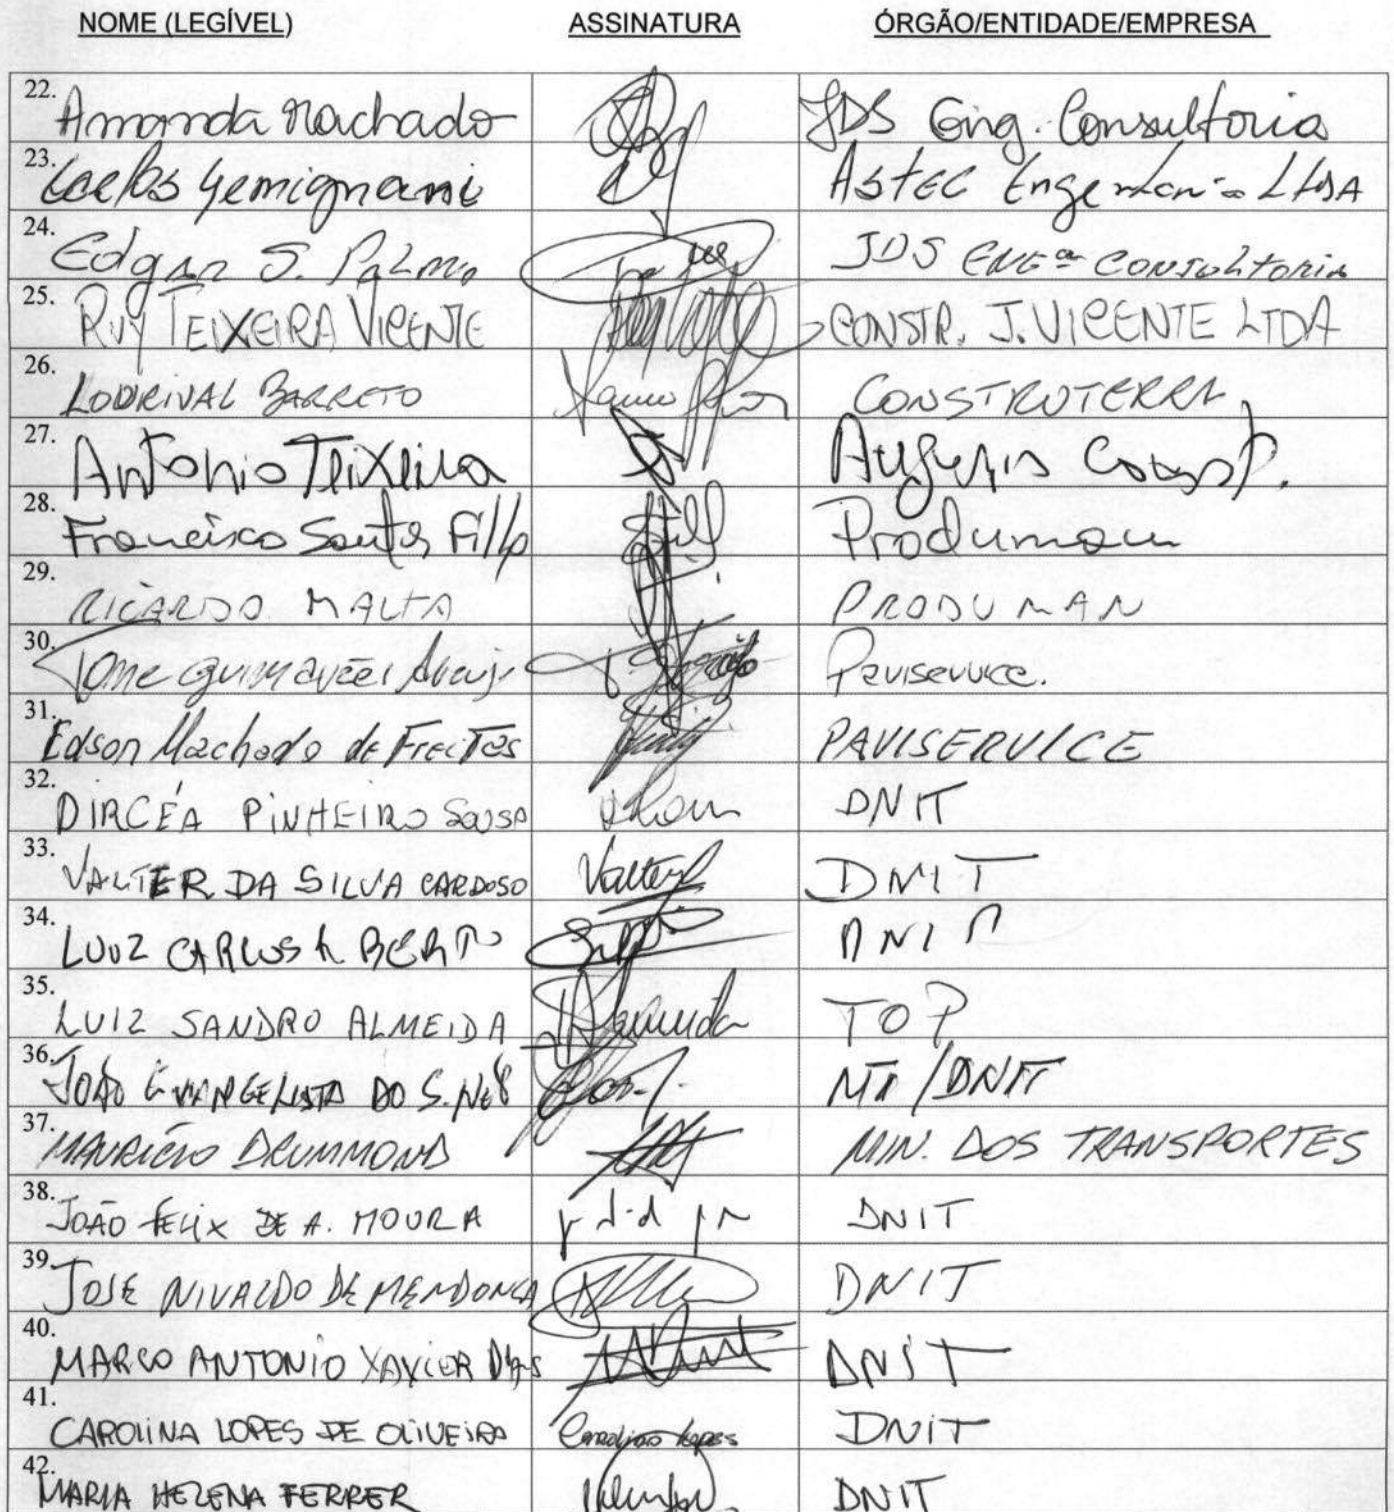 NOME (LEGÍVEL) ASSINATURA ÓRGÃO/ENTIDADE/EMPRESA
22. Amanda Machado JDS Eng. Consultoria
23. Carlos Gemignani Astec Engenharia Ltda
24. Edgar S. Palma JDS ENGª CONSULTORIA
25. RUY TEIXEIRA VICENTE CONSTR. J. VICENTE LTDA
26. LOURIVAL BARRETO CONSTRUTERRA
27. Antonio Teixeira Const.
28. Francisco Santos Filho Produman
29. RICARDO MALTA PRODUMAN
30. Tome Guimarães Araujo Paviservice.
31. Edson Machado de Freitas PAVISERVICE
32. DIRCÉA PINHEIRO SOUSA DNIT
33. VALTER DA SILVA CARDOSO Valter DNIT
34. LUIZ CARLOS BERTO DNIT
35. LUIZ SANDRO ALMEIDA Almeida TOP
36. JOÃO EVANGELISTA DO S. MT/DNIT
37. MAURÍCIO DRUMMOND MIN. DOS TRANSPORTES
38. JOÃO FELIX DE A. MOURA DNIT
39. JOSE NIVALDO DE MENDONÇA DNIT
40. MARCO ANTONIO XAVIER DIAS DNIT
41. CAROLINA LOPES DE OLIVEIRA Carolina Lopes DNIT
42. MARIA HELENA FERRER DNIT